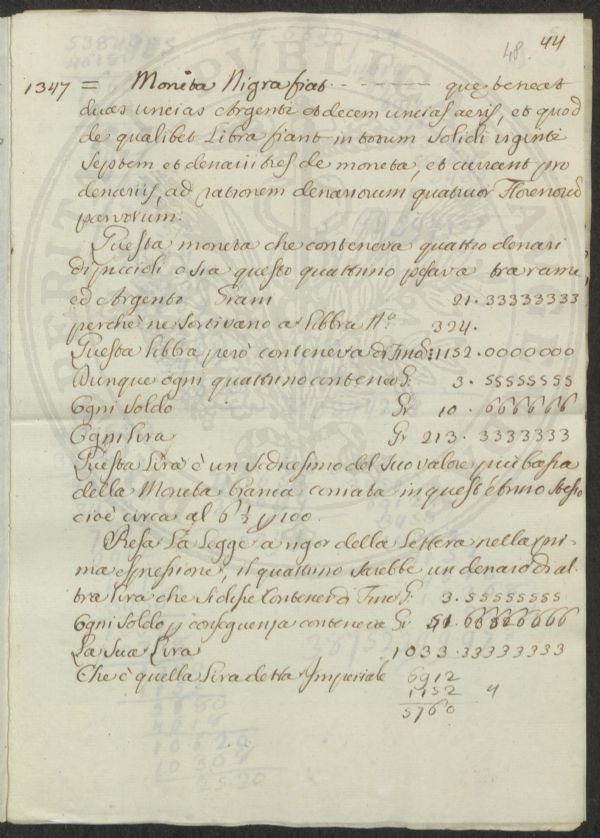 48. 44
1347 = Moneta Nigra fiat - - - - - - - que teneat
duas uncias Argenti et decem uncias aeris, et quod
de qualibet Libra fiant in totum Solidi viginti
septem et denarii tres de moneta, et currant pro
denariis, ad rationem denariorum quatuor Florenord
parvorum.
Questa moneta che conteneva quattro denari
di piccioli o sia questo quattrino pesava tra rame
ed Argento Grani 21.33333333
perchè ne sortivano a libbra N.o 324.
Questa libbra però conteneva di Fino: 1152.0000000
Dunque ogni quattrino contenea G. 3.55555555
Ogni soldo Gr 10.6666666
Ogni Lira Gr 213.3333333
Questa Lira è un sedicesimo del suo valore più bassa
della Moneta bianca coniata in quest'anno stesso
cioè circa al 6 1/4 p 100.
Resa La Legge a rigor della Lettera nella pri-
ma espressione, il quattrino sarebbe un denaro di al-
tra lira che si disse contener di Fino G. 3.55555555
Ogni soldo p conseguenza conteneva Gr 51.66666666
La sua Lira 1033.33333333
Che è quella Lira detta Imperiale 6912
1152 4
5760